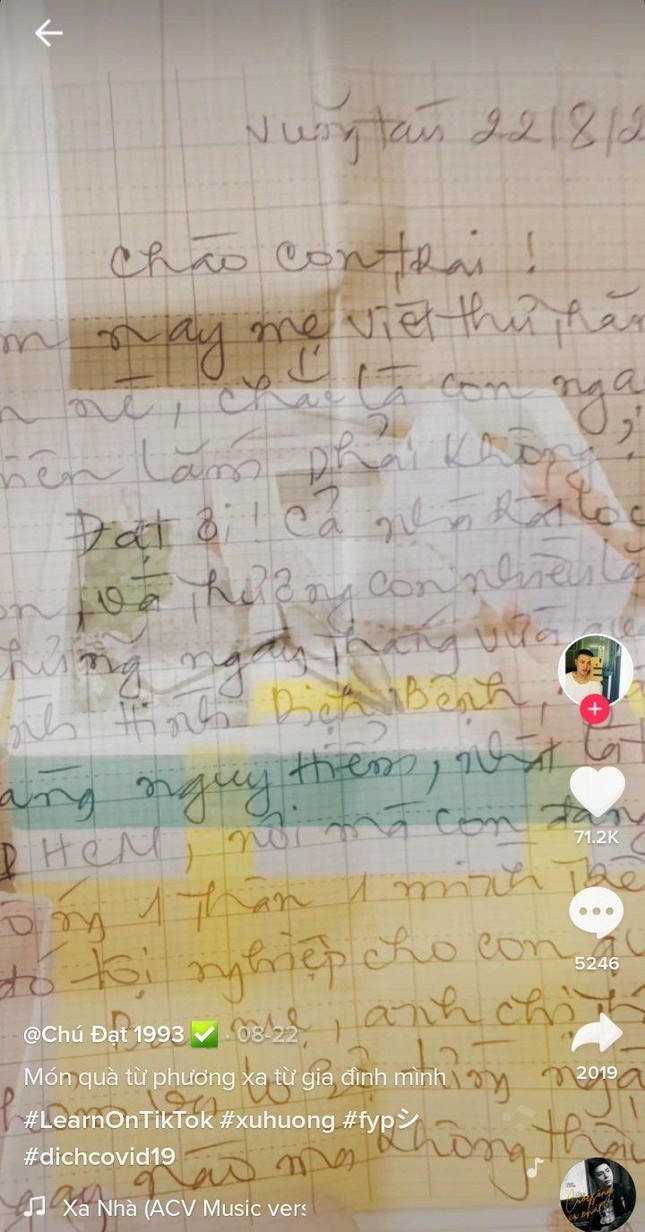 Vũng tàu 22/8/2
Chào con trai !
m nay mẹ viết thư thăm
n nè, chắc là con ngạ
nhên lắm phải không?
Đạt ơi! Cả nhà rất lo
on, và thương con nhiều lắ
những ngày tháng vừa qua
ình hình Dịch Bệnh,
ang nguy hiểm, nhất là t
P HCM, nơi mà con đang
ống 1 thân 1 mình thế
đó tội nghiệp cho con qu
Ba mẹ, anh chị
ngày nào mà không thấy
@Chú Đạt 1993 ✅ · 08-22
Món quà từ phương xa từ gia đình mình
#LearnOnTikTok #xuhuong #fypシ
#dichcovid19
Xa Nhà (ACV Music vers
71.2K
5246
2019